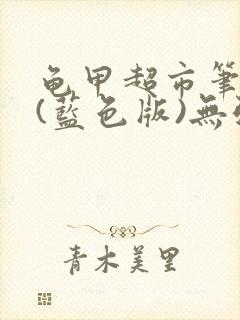 龟甲超市筆
(藍色版)無
青木美里